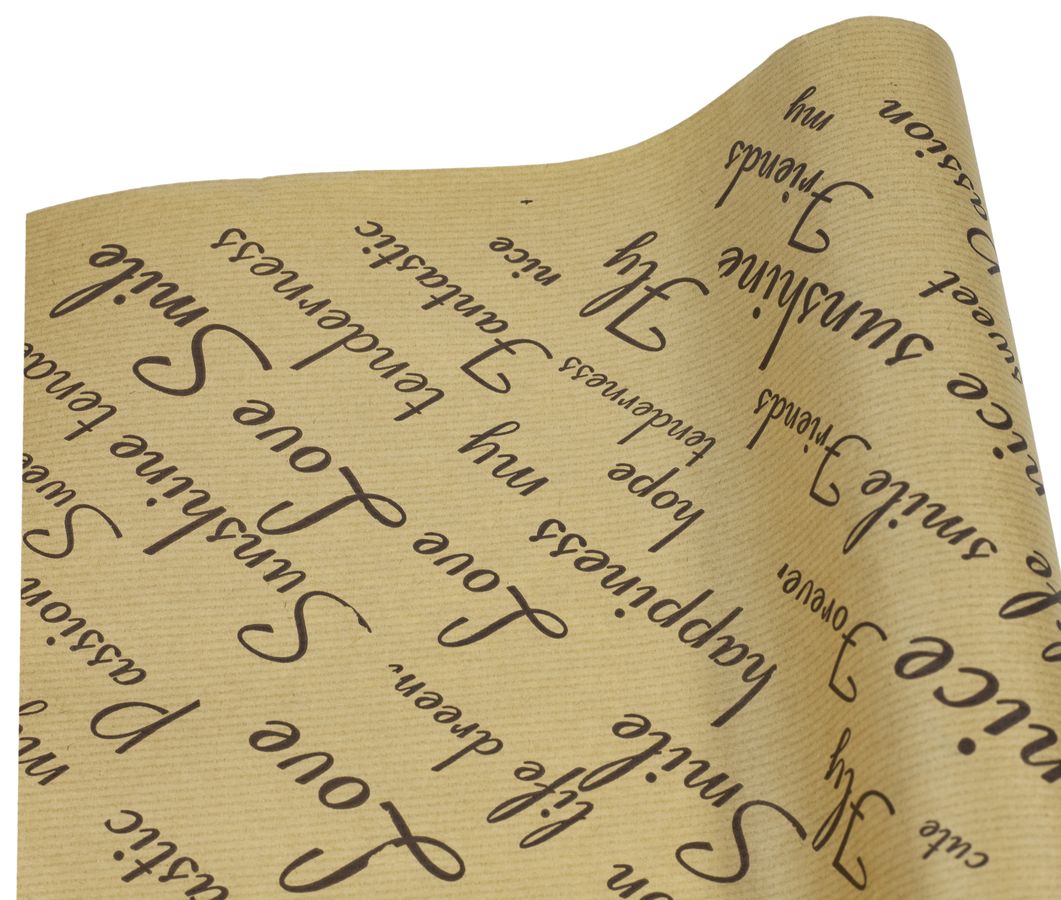 my
Friends
Passion
sunshine
sweet
nice
Fly
nice
Fantastic
tenderness
Smile
Love
Love
tenderness
hope
Friends
smile
my
happiness
Sunshine
Sweet
Passion
my
Forever
nice
Fly
cute
Smile
life dreen,
Love
astic
on